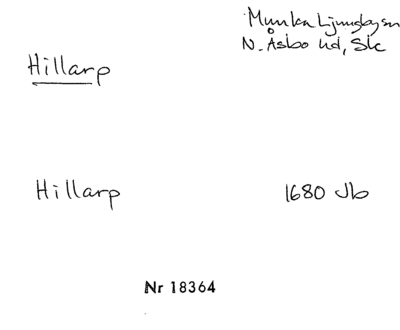 Hillarp
Munka Ljungby sn
N. Åsbo hd, Sk
Hillarp
1680 Jb
Nr 18364